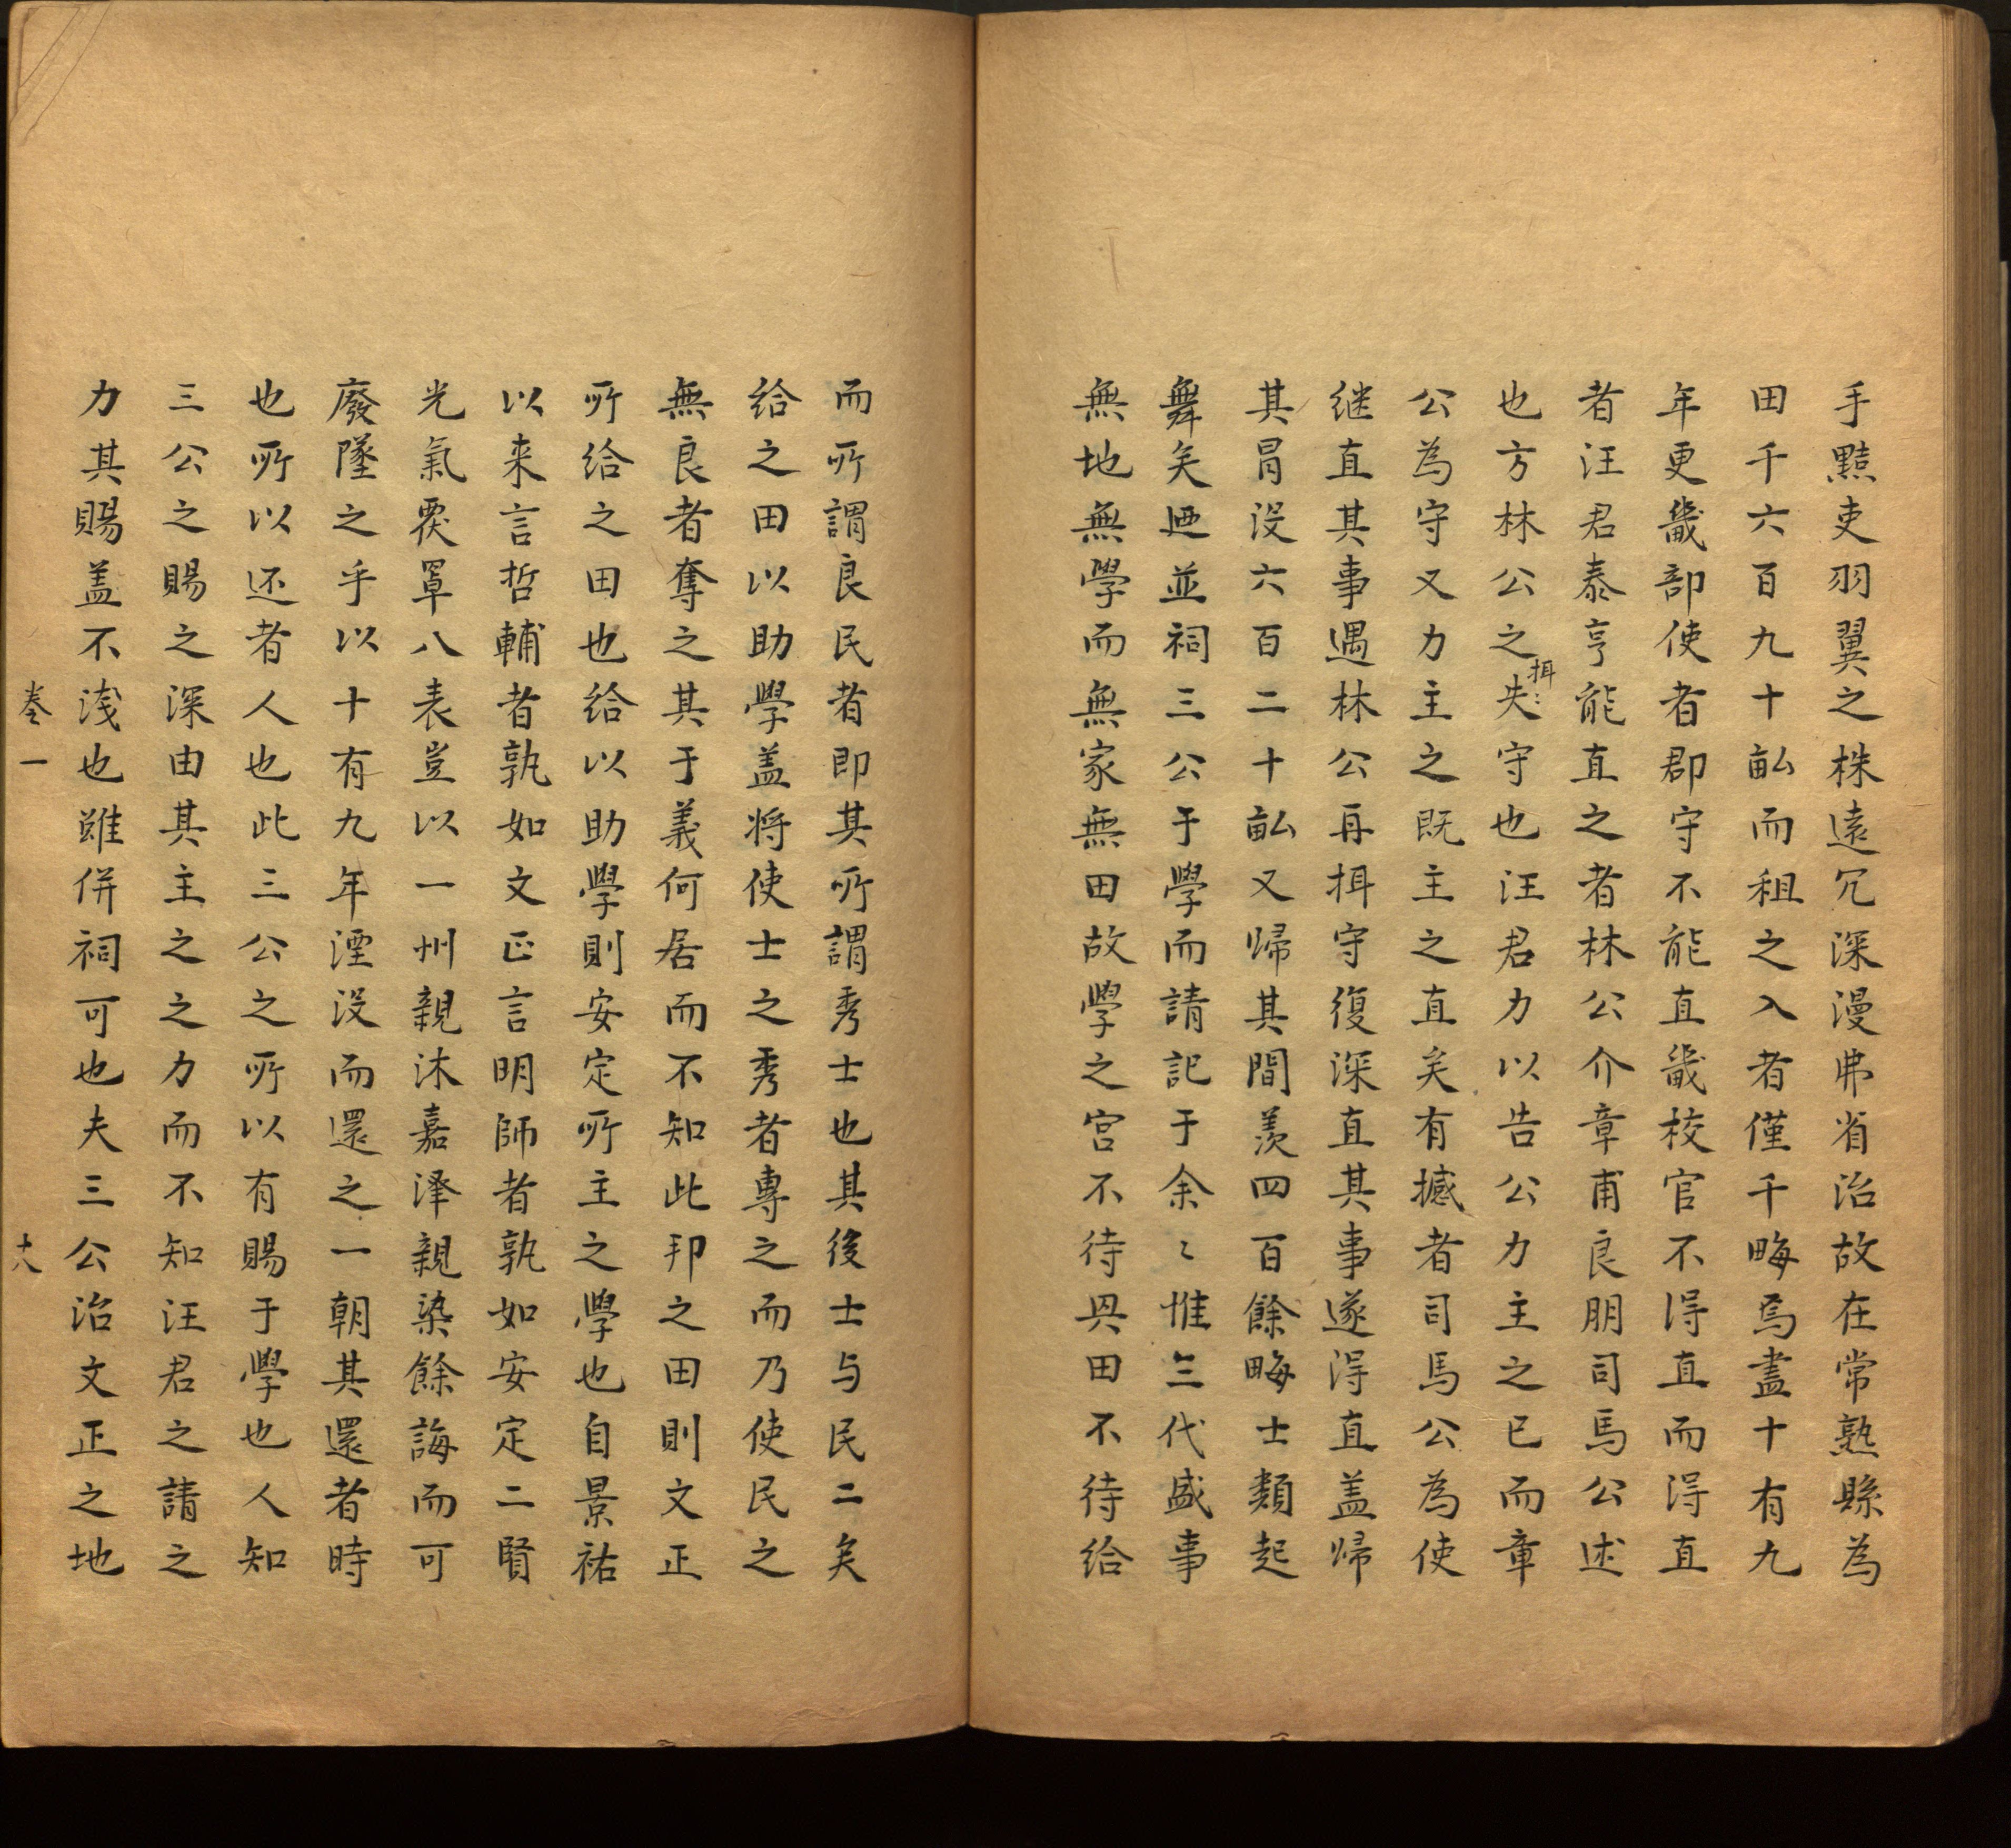 手黠吏羽翼之株遠冗深漫弗省治故在常熟縣為
田千六百九十畆而租之入者僅千畮焉盡十有九
年更畿部使者郡守不能直畿校官不淂直而淂直
者汪君泰亨能直之者林公介章甫良朋司馬公述
也方林公之失守也汪君力以告公力主之已而章
揖
公為守又力主之既主之直矣有撼者司馬公為使
継直其事遇林公再揖守復深直其事遂淂直盖歸
其冐没六百二十畆又歸其間羨四百餘畮士類起
舞矣廼並祠三公于學而請記于余〻惟三代盛事
無地無學而無家無田故學之宫不待畀田不待给
而所謂良民者即其所謂秀士也其後士与民二矣
给之田以助學盖将使士之秀者專之而乃使民之
無良者奪之其于義何居而不知此邦之田則文正
所给之田也给以助學則安定所主之學也自景祐
以来言哲輔者孰如文正言明師者孰如安定二賢
光氣覆罩八表豈以一州親沐嘉泽親染餘誨而可
廢墜之乎以十有九年湮没而還之一朝其還者時
也所以还者人也此三公之所以有賜于學也人知
三公之賜之深由其主之之力而不知汪君之請之
力其賜盖不浅也雖併祠可也夫三公治文正之地
卷一 十八